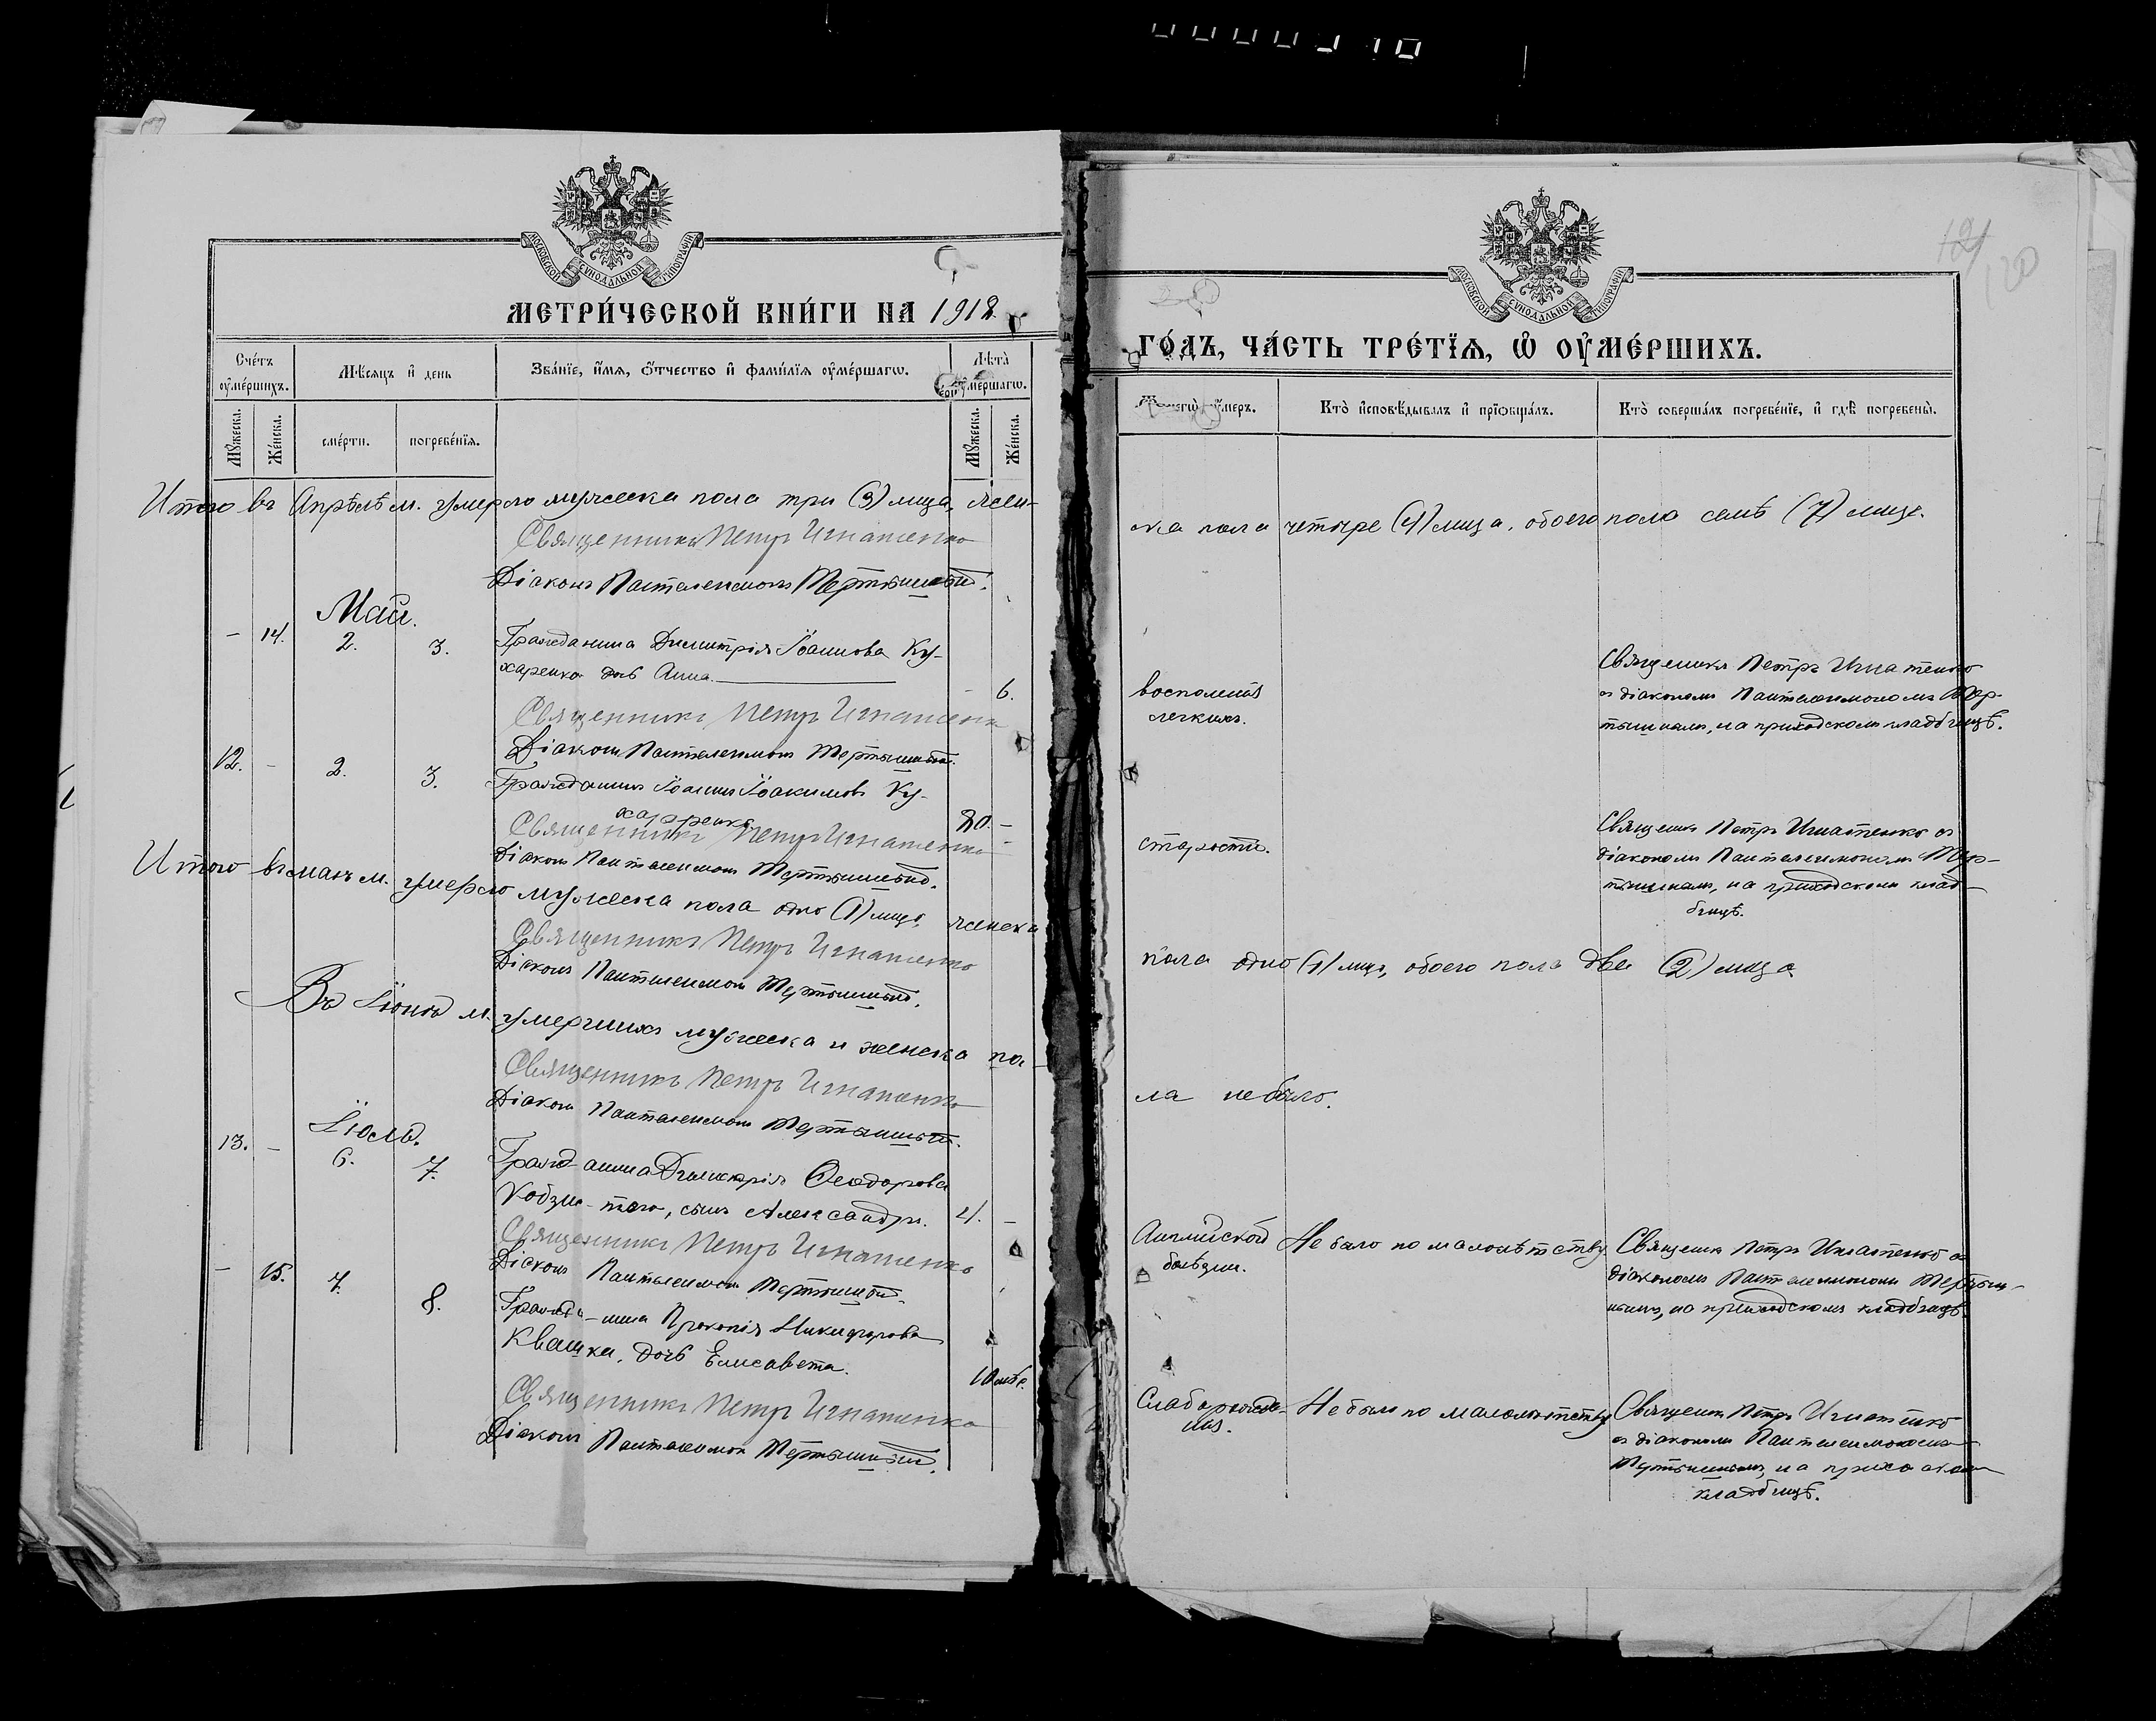 МОСКОВСКОЙ СѴНОДАЛЬНОЙ ТИПОГРАФІИ
МЕТРИ́ЧЕСКОЙ КНИ́ГИ НА 1918
Сче́тъ оумершихъ.
Мѣ́сяцъ и день
Зва́нїе, и́мя, ѻ҆́тчество и фами́лїя оуме́ршагѡ.
Лѣта̀ оуме́ршагѡ.
Мꙋжеска.
Же́нска.
сме́рти.
погребе́нїѧ.
Мꙋжеска.
Же́нска.
Итого въ Апрѣлѣ м. умерло мужеска пола три (3) лица, жен-
Священникъ Петръ Игнатенко
Діаконъ Пантелеимонъ Тертышный.
Май.
- 14. 2. 3. Гражданина Димитрія Іоаннова Ку-
харенко дочь Анна. - 6.
Священникъ Петръ Игнатенко
Діаконъ Пантелеимонъ Тертышный.
12. - 2. 3. Гражданинъ Іоаннъ Іоакимовъ Ку-
харенко 80. -
Священникъ Петръ Игнатенко
Діаконъ Пантелеимонъ Тертышный.
Итого въ маѣ м. умерло мужеска пола одно (1) лицо, женска
Священникъ Петръ Игнатенко
Діаконъ Пантелеимонъ Тертышный.
Въ Іюнѣ м. умершихъ мужеска и женска по-
Священникъ Петръ Игнатенко
Діаконъ Пантелеимонъ Тертышный.
Іюль.
13. - 6. 7. Гражданина Димитрія Ѳеодорова
Кобзис-таго, сынъ Александръ. 4. -
Священникъ Петръ Игнатенко
Діаконъ Пантелеимонъ Тертышный.
- 15. 7. 8. Гражда-нина Прокопія Никифорова
Квашки, дочь Елисавета. 10 мѣс.
Священникъ Петръ Игнатенко
Діаконъ Пантелеимонъ Тертышный.
120
МОСКОВСКОЙ СѴНОДАЛЬНОЙ ТИПОГРАФІИ
ГО́ДЪ, ЧА́СТЬ ТРЕ́ТЇѦ, Ѡ ОУМЕ́РШИХЪ.
оумеръ.
Кто̀ и҆сповѣ́дывалъ и҆ прїѡбща́лъ.
Кто̀ соверша́лъ погребе́нїе, и҆ гдѣ̀ погребены̀.
ска пола четыре (4) лица, обоего пола семь (7) лицъ.
воспаленія
легкихъ.
Священникъ Петръ Игнатенко
съ діакономъ Пантелеимономъ Тер-
тышнымъ, на приходскомъ кладбищѣ.
старости.
Священникъ Петръ Игнатенко съ
діакономъ Пантелеимономъ Тер-
тышнымъ, на приходскомъ клад-
бищѣ.
пола одно (1) лицо, обоего пола два (2) лица
ла не было.
Англійской
болѣзни.
Не было по малолѣтству
Священникъ Петръ Игнатенко съ
діакономъ Пантелеимономъ Тертыш-
нымъ, на приходскомъ кладбищѣ.
Слаборожде-
нія.
Не было по малолѣтству
Священникъ Петръ Игнатенко
съ діакономъ Пантелеимономъ
Тертышнымъ, на приходскомъ
кладбищѣ.